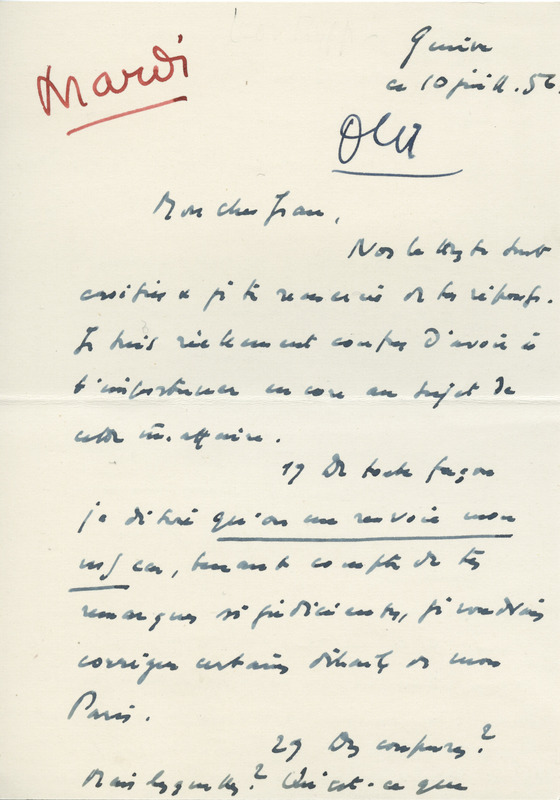 Mardi
Genève
ce 10 juill. 56.
Mon cher Jean,
Nos lettres se sont
croisées & je te remercie de tes réponses.
Je suis réellement confus d'avoir à
t'importuner encore au sujet de
cette affaire.
1) De toute façon
je désire qu'on me renvoie mon
msj car, tenant compte de tes
remarques si judicieuses, je voudrais
corriger certains détails de mon
Paris.
2) Des coupures?
Mais lesquelles? Qu'est-ce que